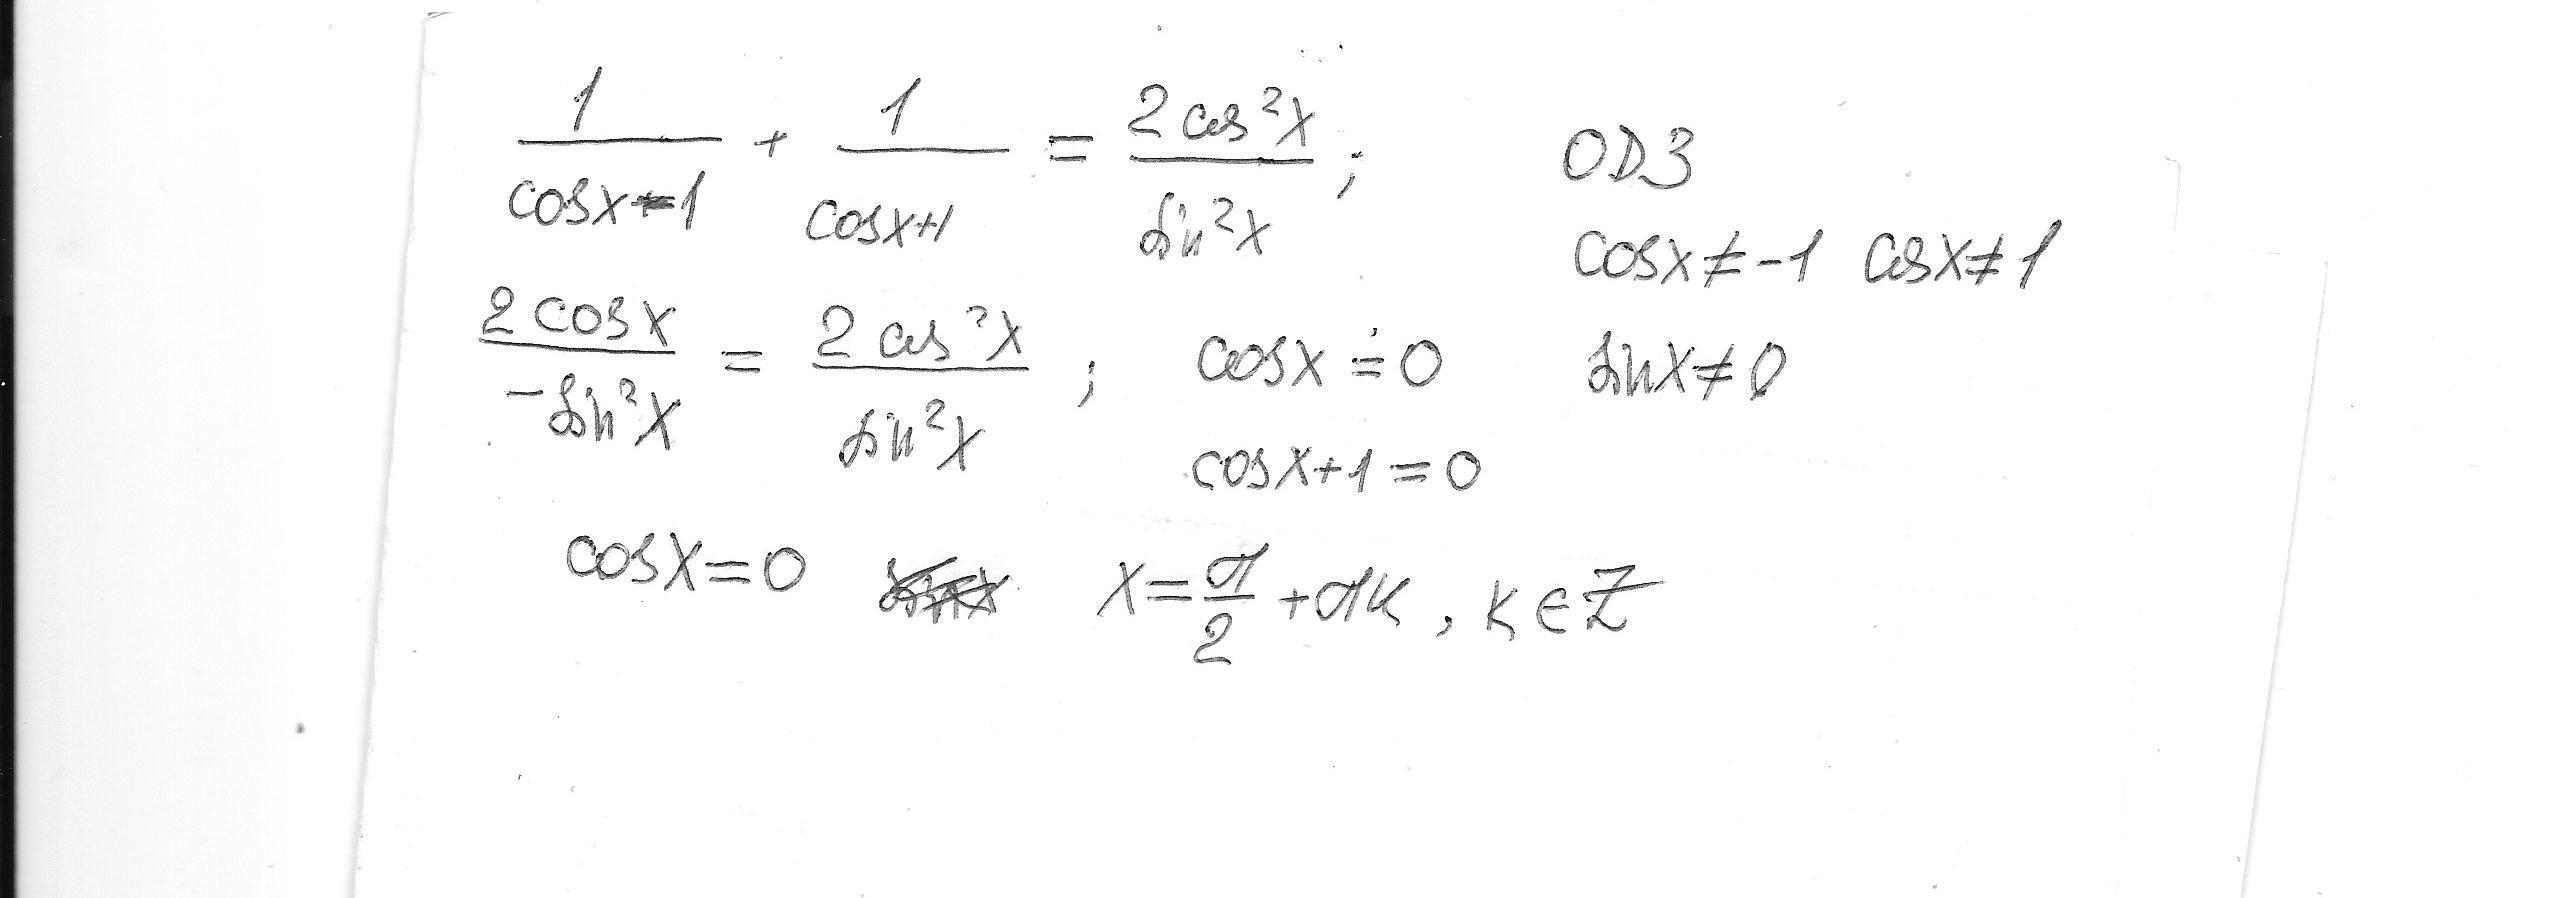 1/(cosx-1) + 1/(cosx+1) = 2cos²x/sin²x; ОДЗ
cosx≠-1 cosx≠1
2cosx/-sin²x = 2cos²x/sin²x; cosx=0 sinx≠0
cosx+1=0
cosx=0 x=π/2+πk, k∈Z